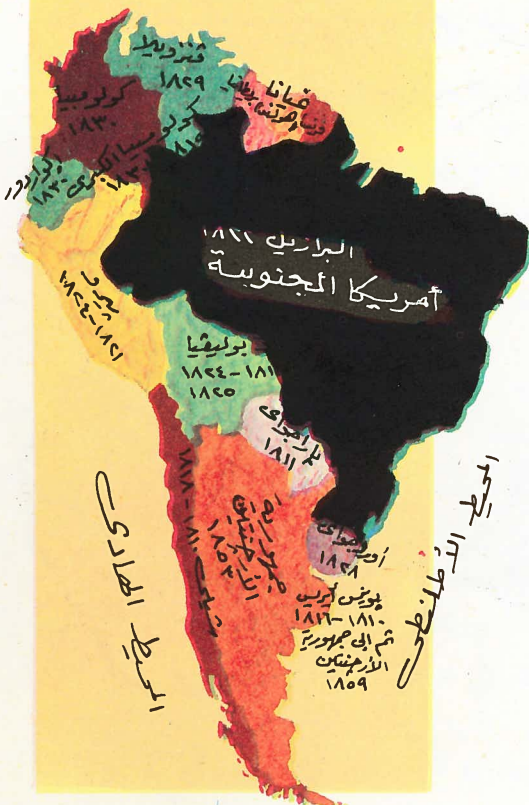 فنزويلا
١٨٢٩
كولومبيا
١٨٣٠
غيانا
كولومبيا الكبرى
١٨٣٠
البرازيل ١٨٢٢
أمريكا الجنوبية
١٨٢١-١٨٢٤
بوليڤيا
١٨٢٤-١٨١
١٨٢٥
باراجواى
١٨١١
جمهورية
الأرجنتين
١٨٥٣
أورجواى
١٨٢٨
بوينس أيريس
١٨١٠-١٨١٦
ثم إلى جمهورية
الأرجنتين
١٨٥٩
المحيط الهادى
المحيط الأطلنطى